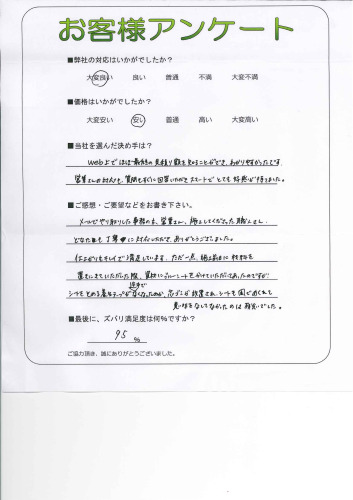 お客様アンケート
■弊社の対応はいかがでしたか？
大変良い 良い 普通 不満 大変不満
■価格はいかがでしたか？
大変安い 安い 普通 高い 大変高い
■当社を選んだ決め手は？
Web上でほぼ最終の見積り額を知ることができ、わかりやすかったです。
営業さんの対応も、質問もすぐに回答いただけスマートでとても好感が持てました。
■ご感想・ご要望などをお書き下さい。
メールでやり取りした事務の方、営業さん、施工してくださった職人さん、
どなたも丁寧に対応いただき、ありがとうございました。
仕上がりもキレイで満足しています。ただ一点、施工前日に材料を
置きにきていただいた際、資材にブルーシートをかけていただいてあったのですが
途中で
シートをとめる養生テープがなくなったのか、芯だけが放置され、シートも風でめくれて
意味をなしてなかったのは残念でした。
■最後に、ズバリ満足度は何%ですか？
95 %
ご協力頂き、誠にありがとうございました。